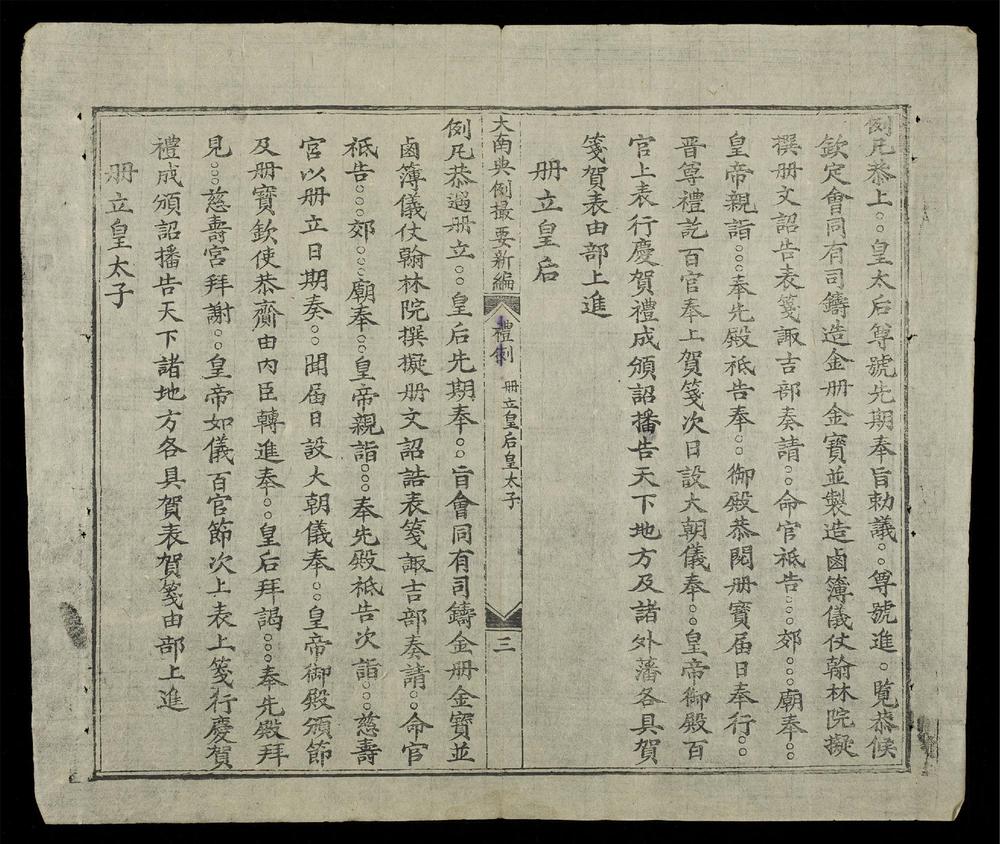 例凡恭上○○皇太后尊號先期奉旨勅議○○尊號進○覧恭候
欽定會同有司鑄造金册金寶並製造鹵簿儀仗翰林院擬
撰册文詔告表箋諏吉部奏請○○命官袛告○○○郊○○○廟奉○○
皇帝親詣○○○奉先殿袛告奉○○御殿恭閱册寶届日奉行○○
晉尊禮訖百官奉上賀箋次日設大朝儀奉○○皇帝御殿百
官上表行慶賀禮成頒詔播告天下地方及諸外藩各具賀
箋賀表由部上進
册立皇后
大南典例撮要新編
禮例
册立皇后皇太子
三
例凡恭遇册立○○皇后先期奉○○旨會同有司鑄金册金寶並
鹵薄儀仗翰林院撰擬册文詔誥表箋諏吉部奏請○○命官
袛告○○○郊○○○廟奉○○皇帝親詣○○○奉先殿袛告次詣○○○慈壽
宮以册立日期奏○○聞届日設大朝儀奉○○皇帝御殿頒節
及册寶欽使恭齎由内臣轉進奉○○皇后拜謁○○○奉先殿拜
見○○○慈壽宮拜謝○○皇帝如儀百官節次上表上箋行慶賀
禮成頒詔播告天下諸地方各具賀表賀箋由部上進
册立皇太子